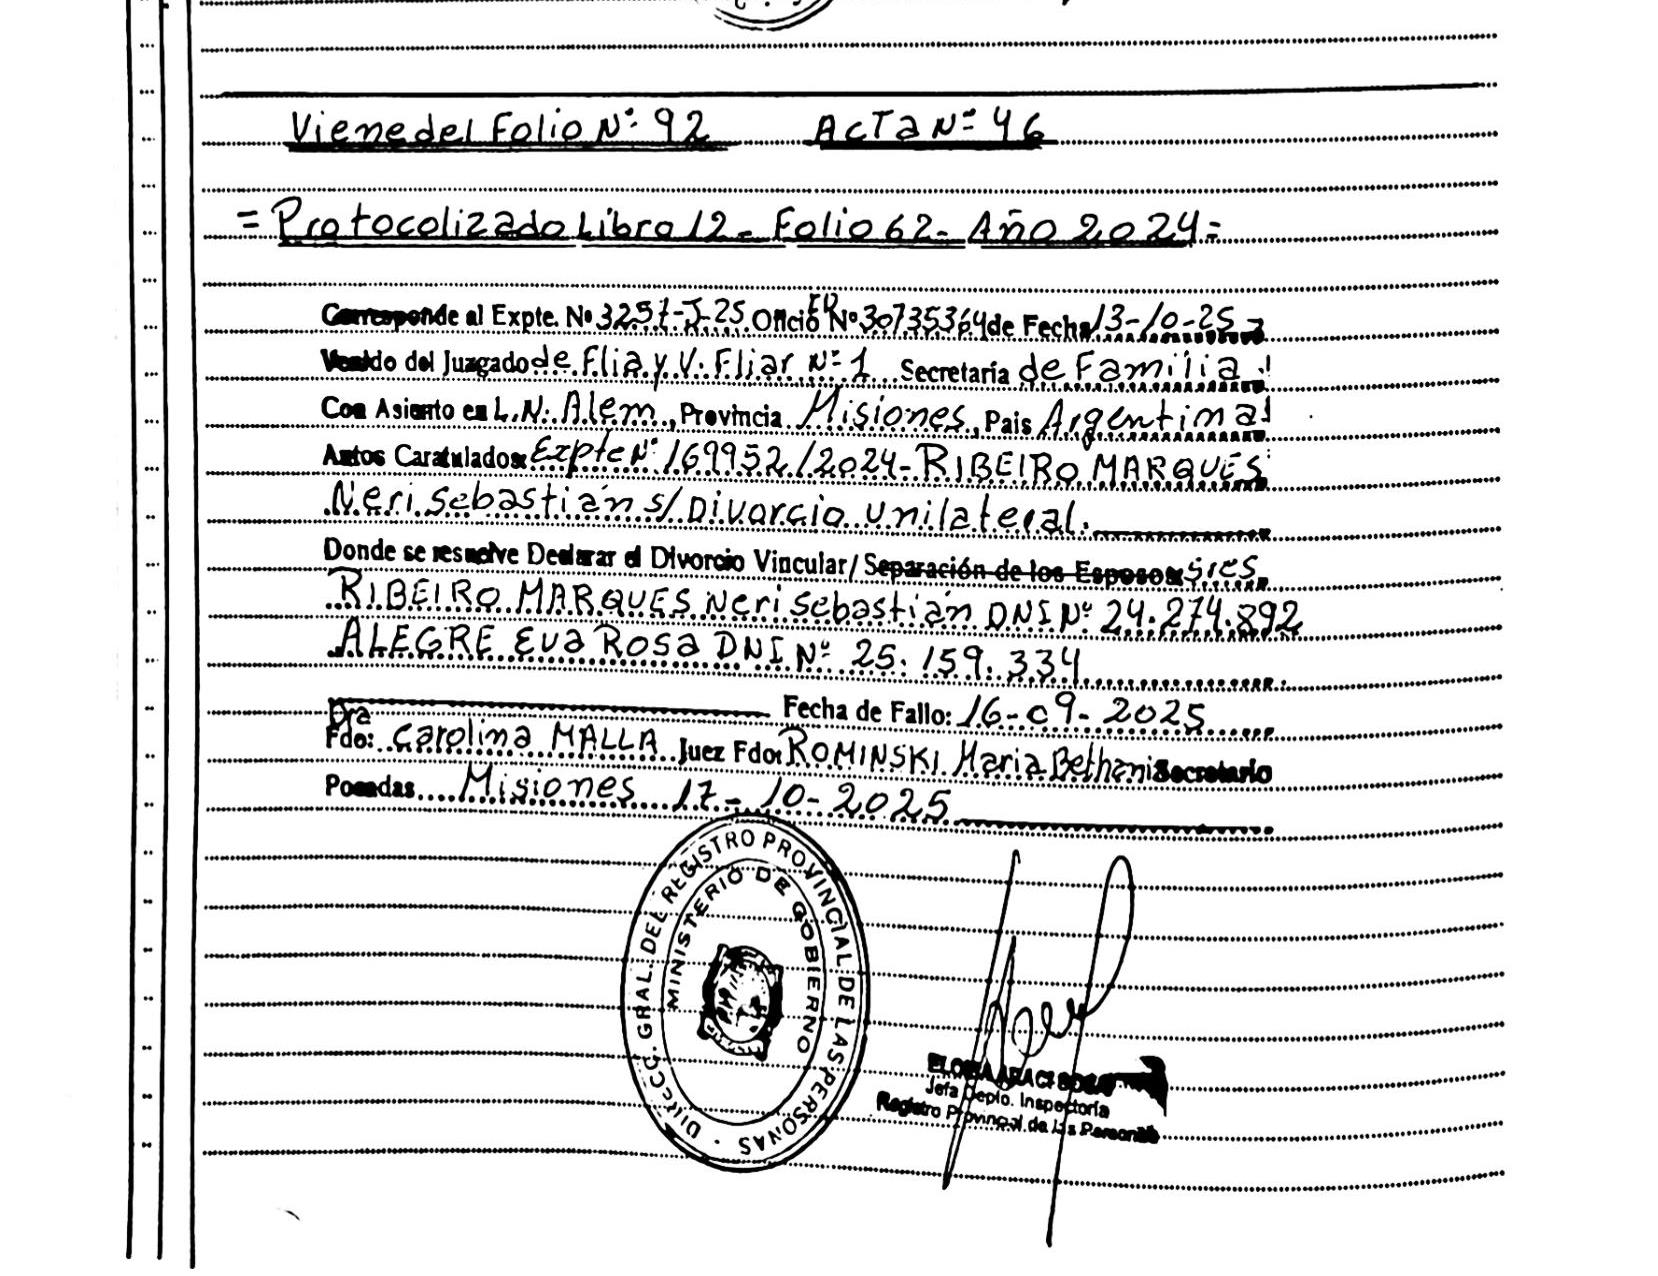 Viene del Folio Nº 92 Acta Nº 46
= Protocolizado Libro 12 - Folio 62 - Año 2024 =
Corresponde al Expte. Nº 3257-J-25 Oficio ED Nº 30735364 de Fecha 13-10-25
Venido del Juzgado de Flia y V. Fliar Nº 1 Secretaría de Familia
Con Asiento en L.N. Alem, Provincia Misiones, Pais Argentina
Autos Caratulados Expte Nº 169952/2024 - RIBEIRO MARQUES
Neri Sebastián s/ Divorcio unilateral.
Donde se resuelve Declarar el Divorcio Vincular/ Separación de los Esposos: sres
RIBEIRO MARQUES Neri Sebastián DNI Nº 24.274.892
ALEGRE Eva Rosa DNI Nº 25.159.334
Fecha de Fallo: 16-09-2025
Dra
Fdo: Carolina MALLA Juez Fdo: ROMINSKI Maria Bethani Secretario
Posadas Misiones 17-10-2025
DIRECC. GRAL. DEL REGISTRO PROVINCIAL DE LAS PERSONAS
MINISTERIO DE GOBIERNO
Jefa Depto. Inspectoría
Registro Provincial de las Personas